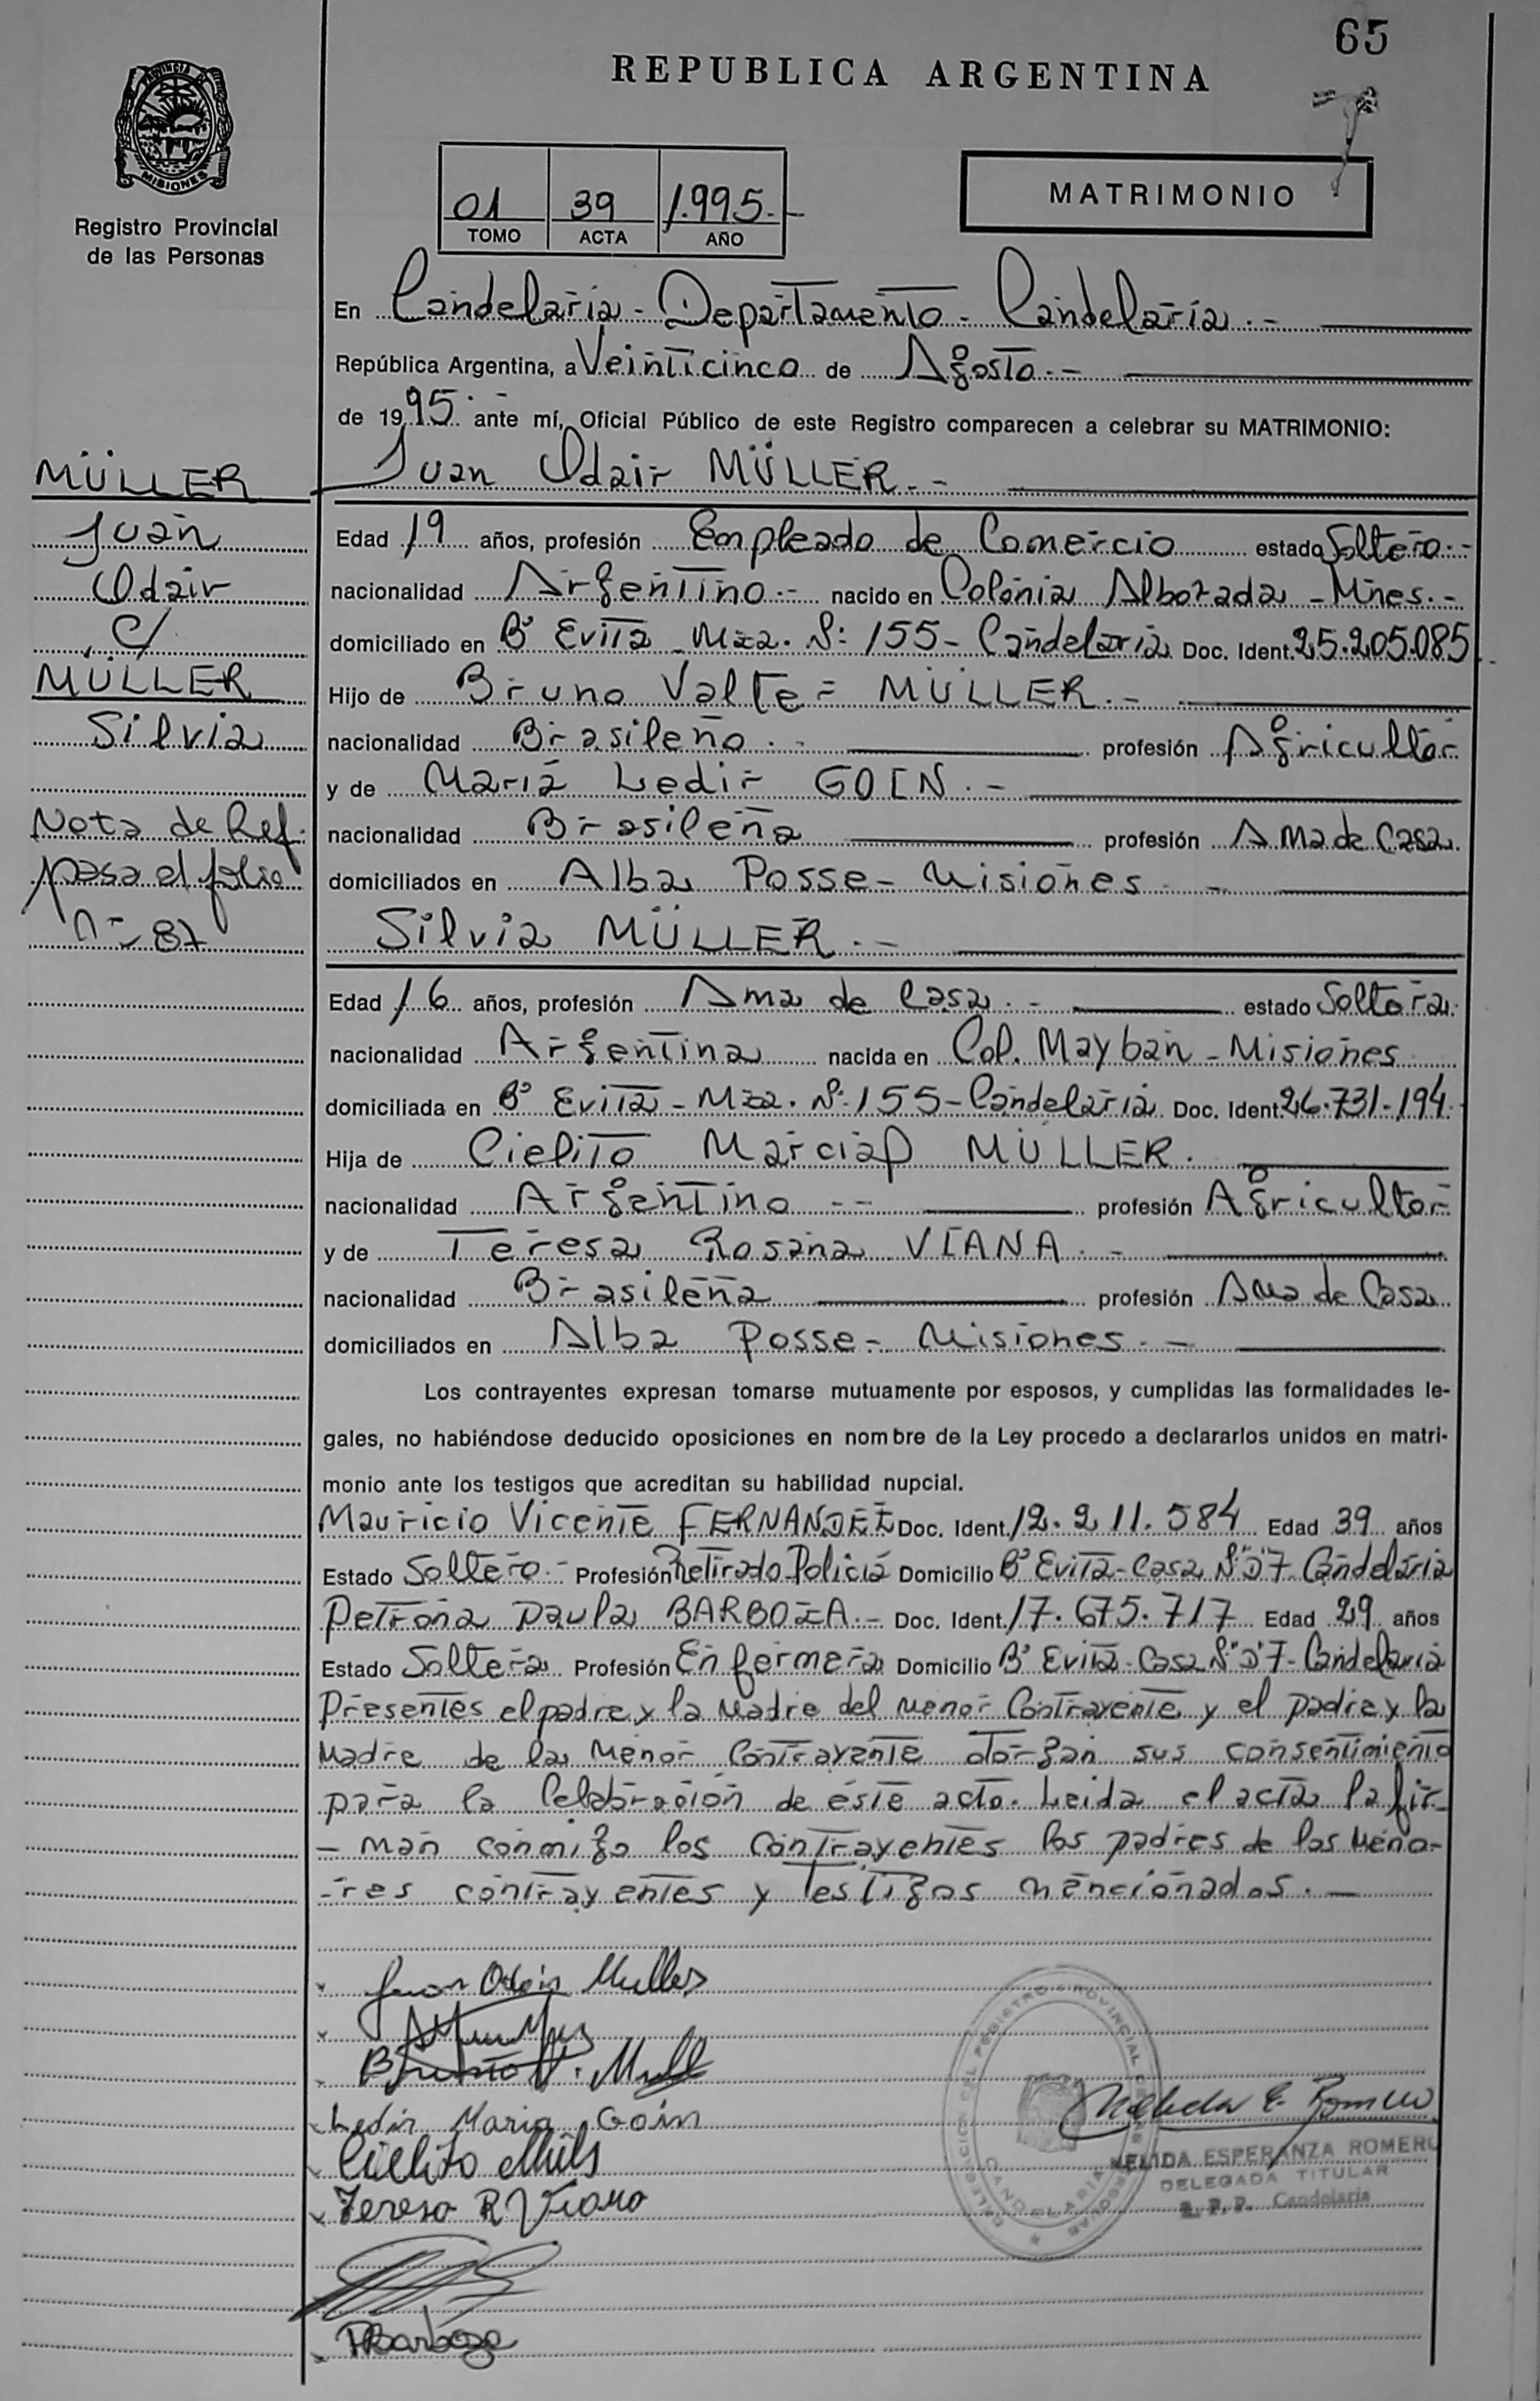 65
REPUBLICA ARGENTINA
PROVINCIA DE
MISIONES
Registro Provincial
de las Personas
01 39 1.995.-
TOMO ACTA AÑO
MATRIMONIO
En Candelaria - Departamento - Candelaria.-
República Argentina, a Veinticinco de Agosto.-
de 1995.- ante mí, Oficial Público de este Registro comparecen a celebrar su MATRIMONIO:
Juan Odair MÜLLER.-
MÜLLER
Juan
Odair
C/
MÜLLER
Silvia
Nota de Ref.
pasa al folio
Nº 87
Edad 19 años, profesión Empleado de Comercio estado Soltero.-
nacionalidad Argentino.- nacido en Colonia Alborada - Mnes.-
domiciliado en Bº Evita - Mza. Nº 155 - Candelaria Doc. Ident. 25.205.085
Hijo de Bruno Valter MÜLLER.-
nacionalidad Brasileño.- profesión Agricultor
y de María Ledir GOIN.-
nacionalidad Brasileña profesión Ama de Casa
domiciliados en Alba Posse - Misiones.-
Silvia MÜLLER.-
Edad 16 años, profesión Ama de Casa.- estado Soltera.
nacionalidad Argentina nacida en Col. Mayban - Misiones
domiciliada en Bº Evita - Mza. Nº 155 - Candelaria Doc. Ident. 26.731.194
Hija de Cielito Marcial MÜLLER.
nacionalidad Argentino -- profesión Agricultor
y de Teresa Rosana VIANA.-
nacionalidad Brasileña profesión Ama de Casa
domiciliados en Alba Posse - Misiones.-
Los contrayentes expresan tomarse mutuamente por esposos, y cumplidas las formalidades le-
gales, no habiéndose deducido oposiciones en nombre de la Ley procedo a declararlos unidos en matri-
monio ante los testigos que acreditan su habilidad nupcial.
Mauricio Vicente FERNANDEZ Doc. Ident. 12.211.584 Edad 39 años
Estado Soltero.- Profesión Retirado Policía Domicilio Bº Evita - Casa Nº "D" 7 - Candelaria
Petrona Paula BARBOZA.- Doc. Ident. 17.675.717 Edad 29 años
Estado Soltera Profesión Enfermera Domicilio Bº Evita - Casa Nº "D" 7 - Candelaria
Presentes el padre y la Madre del Menor Contrayente y el padre y la
Madre de la Menor Contrayente otorgan sus consentimiento
para la Celebración de éste acto. Leida el acta la fir-
-man conmigo los contrayentes los padres de los Meno-
-res contrayentes y testigos mencionados.-
Juan Odair Muller
Bruno V. Mull
Ledir Maria Goin
Cielito
Teresa R Viana
PBarboza
DELEGACION DEL REGISTRO PROVINCIAL DE LAS PERSONAS
CANDELARIA
Nelida E. Romero
NELIDA ESPERANZA ROMERO
DELEGADA TITULAR
R. P. P. Candelaria